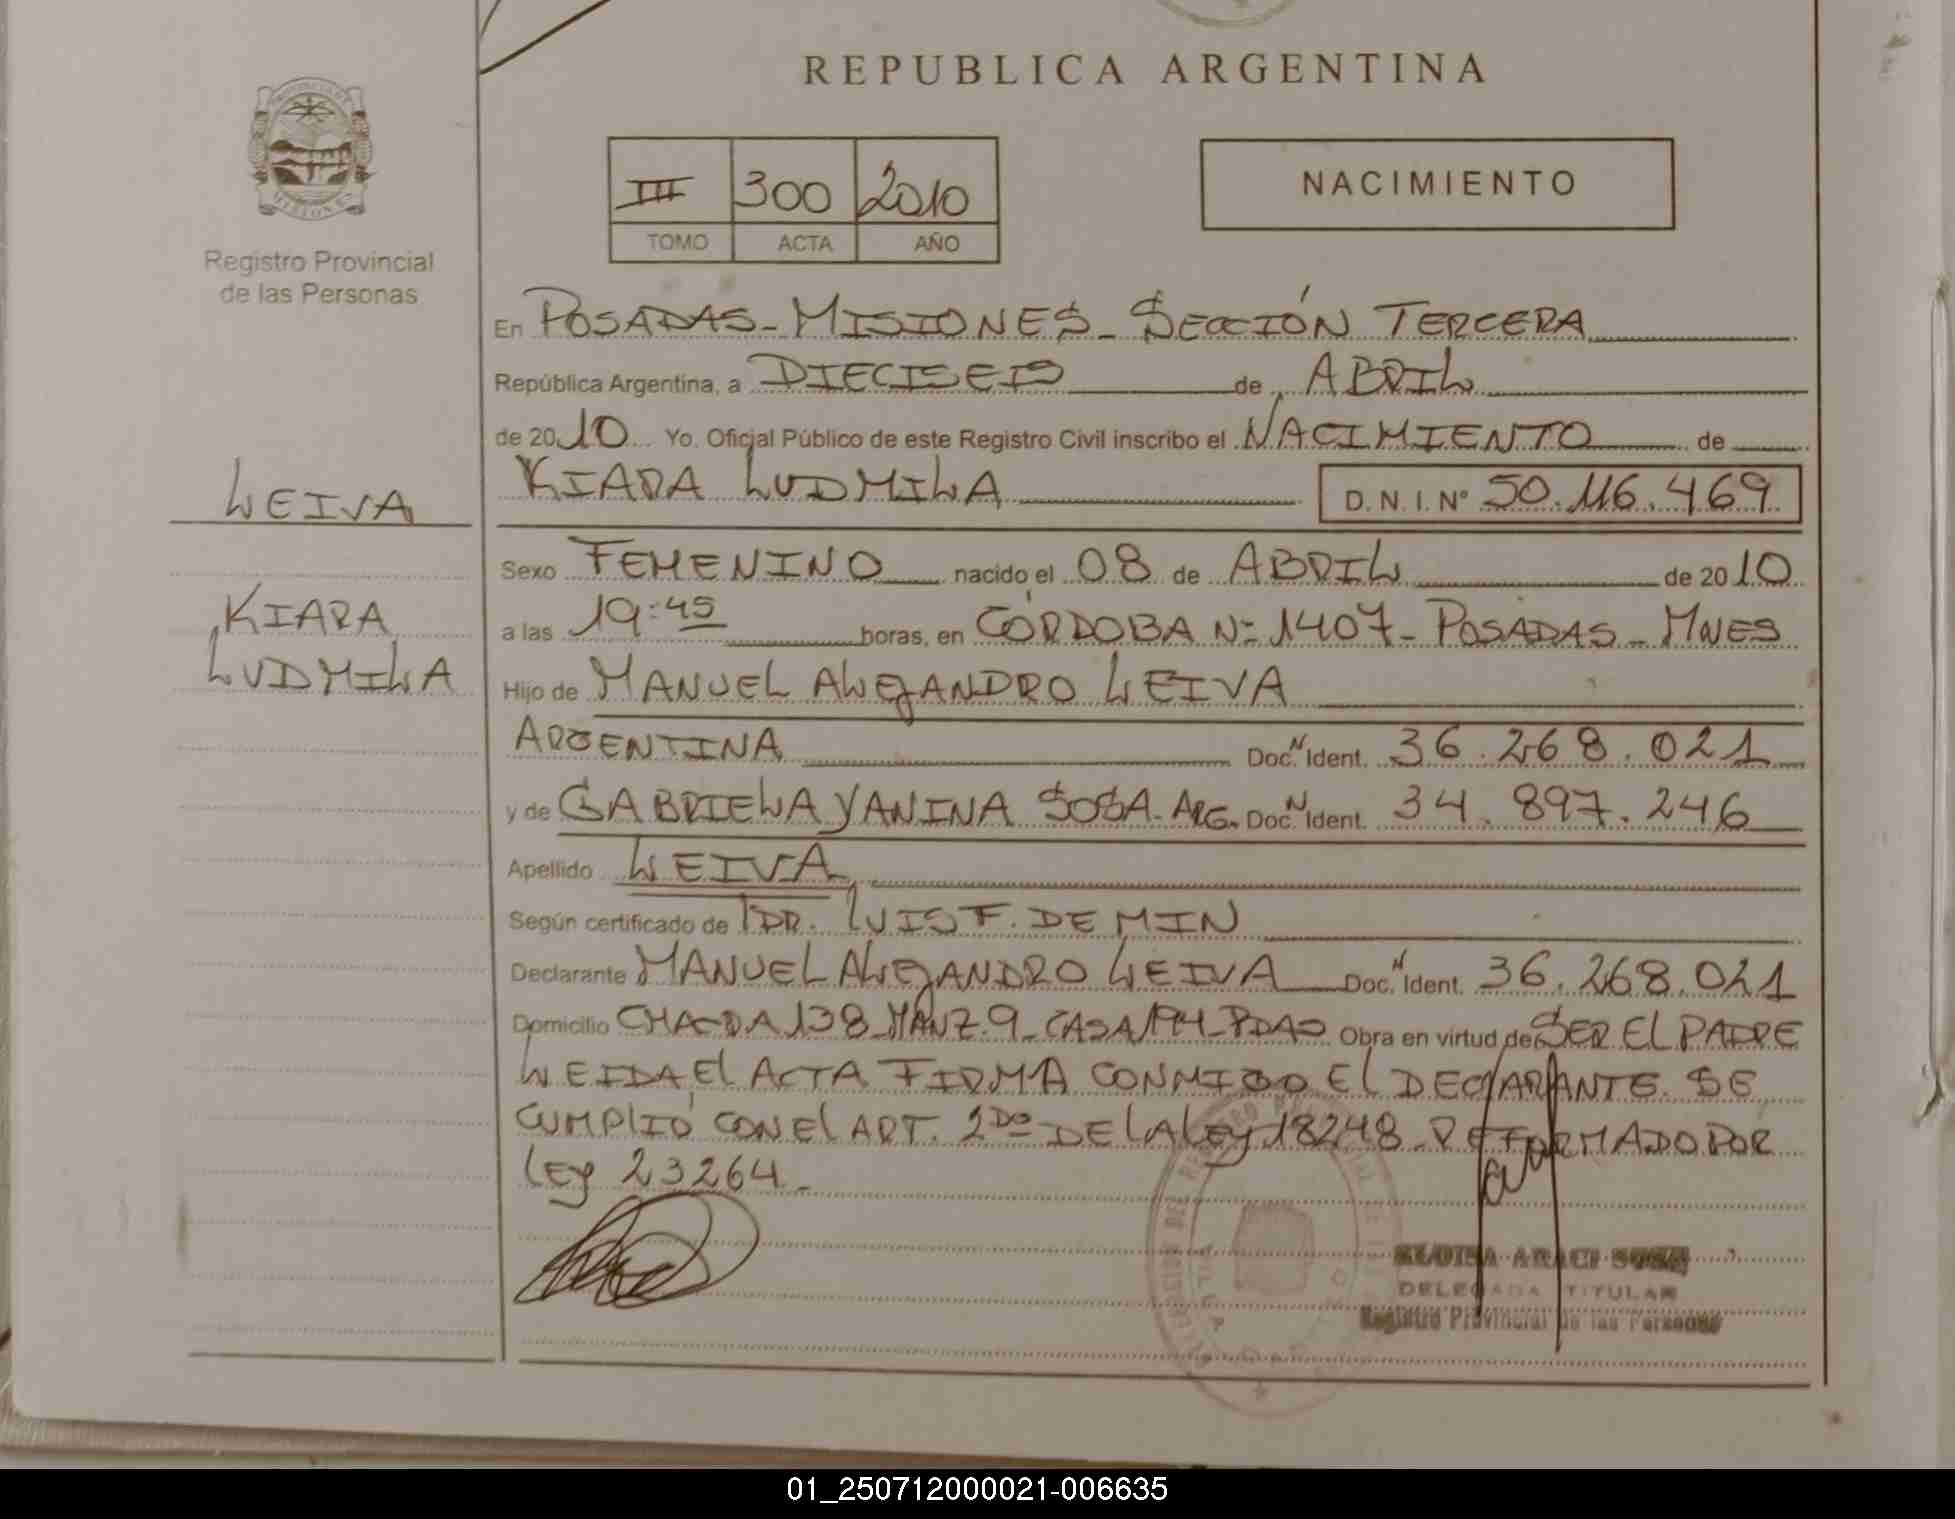 REPUBLICA ARGENTINA
III 300 2010
TOMO ACTA AÑO
NACIMIENTO
Registro Provincial
de las Personas
LEIVA
KIARA
LUDMILA
En POSADAS - MISIONES - SECCIÓN TERCERA
República Argentina, a DIECISEIS de ABRIL
de 2010 Yo, Oficial Público de este Registro Civil inscribo el NACIMIENTO de
KIARA LUDMILA D.N.I. N° 50.116.469
Sexo FEMENINO nacido el 08 de ABRIL de 2010
a las 19:45 horas, en CÓRDOBA Nº 1407 - POSADAS - MNES
Hijo de MANUEL ALEJANDRO LEIVA
ARGENTINA Doc. N Ident. 36.268.021
y de GABRIELA YANINA SOSA - ARG. Doc. N Ident. 34.897.246
Apellido LEIVA
Según certificado de DR. LUIS F. DE MIN
Declarante MANUEL ALEJANDRO LEIVA Doc. N Ident. 36.268.021
Domicilio CHACRA 138 - MANZ. 9 - CASA 194 - PDAS Obra en virtud de SER EL PADRE
LEIDA El ACTA FIRMA CONMIGO El DEClARANTE. SE
CUMPLIÓ CON El ART. 2DO DE LA LEY 18248 - REFORMADO POR
LEY 23264 -
ARACI SOSA
DELEGADA TITULAR
Registro Provincial de las Personas
01_250712000021-006635